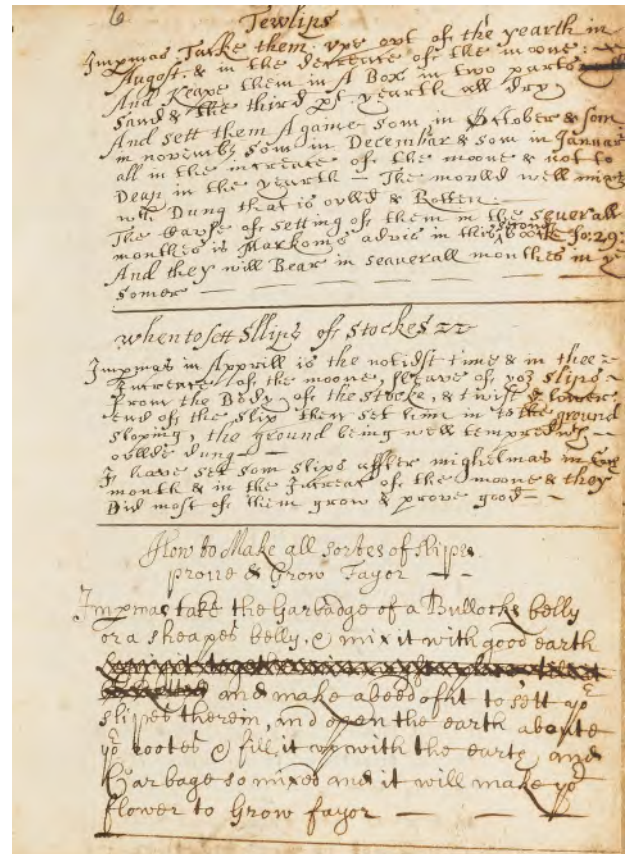 6 Tewlips
Impmas Tacke them vpe out of the yearth in
August. & in the decreace of the moone:
And Keape them in A Box in two parts
Sand & the third pt yearth all dry
And sett them Againe Som in October & som
in novembr Som in December & som in Januar
all in the increace of the moone & not to
Deap in the yearth – The moulld well mixt
wth Dung that is oulld & Rotten:
The of setting of them in the seuerall
monthes is Markoms advis in this Second Booke fo: 29:
And they will Bear in seauerall monthes in ye
Somer
when to sett Sllips of Stockes
Impmas in Apprill is the time & in thee
Increace of the moone, sleave of yor slips
From the Body of the Stocke, & twist ye lower
end of the slip then set him in to the ground
sloping, the ground being well tempred wth
oullde dung
I have set som slips affter mighelmas in
month & in the Increac of the moone & they
Did most of them grow & prove good
How to Make all sortes of slippes
proue & Grow Fayor
Impmas take the Garbadge of a Bullocks belly
or a sheapes belly, & mix it with good earth
and make a beed of it to sett yor
slipes therein, and open the earth aboute
ye rootes & fill it vp with the earte and
Garbage so mixed and it will make yor
flower to Grow fayor